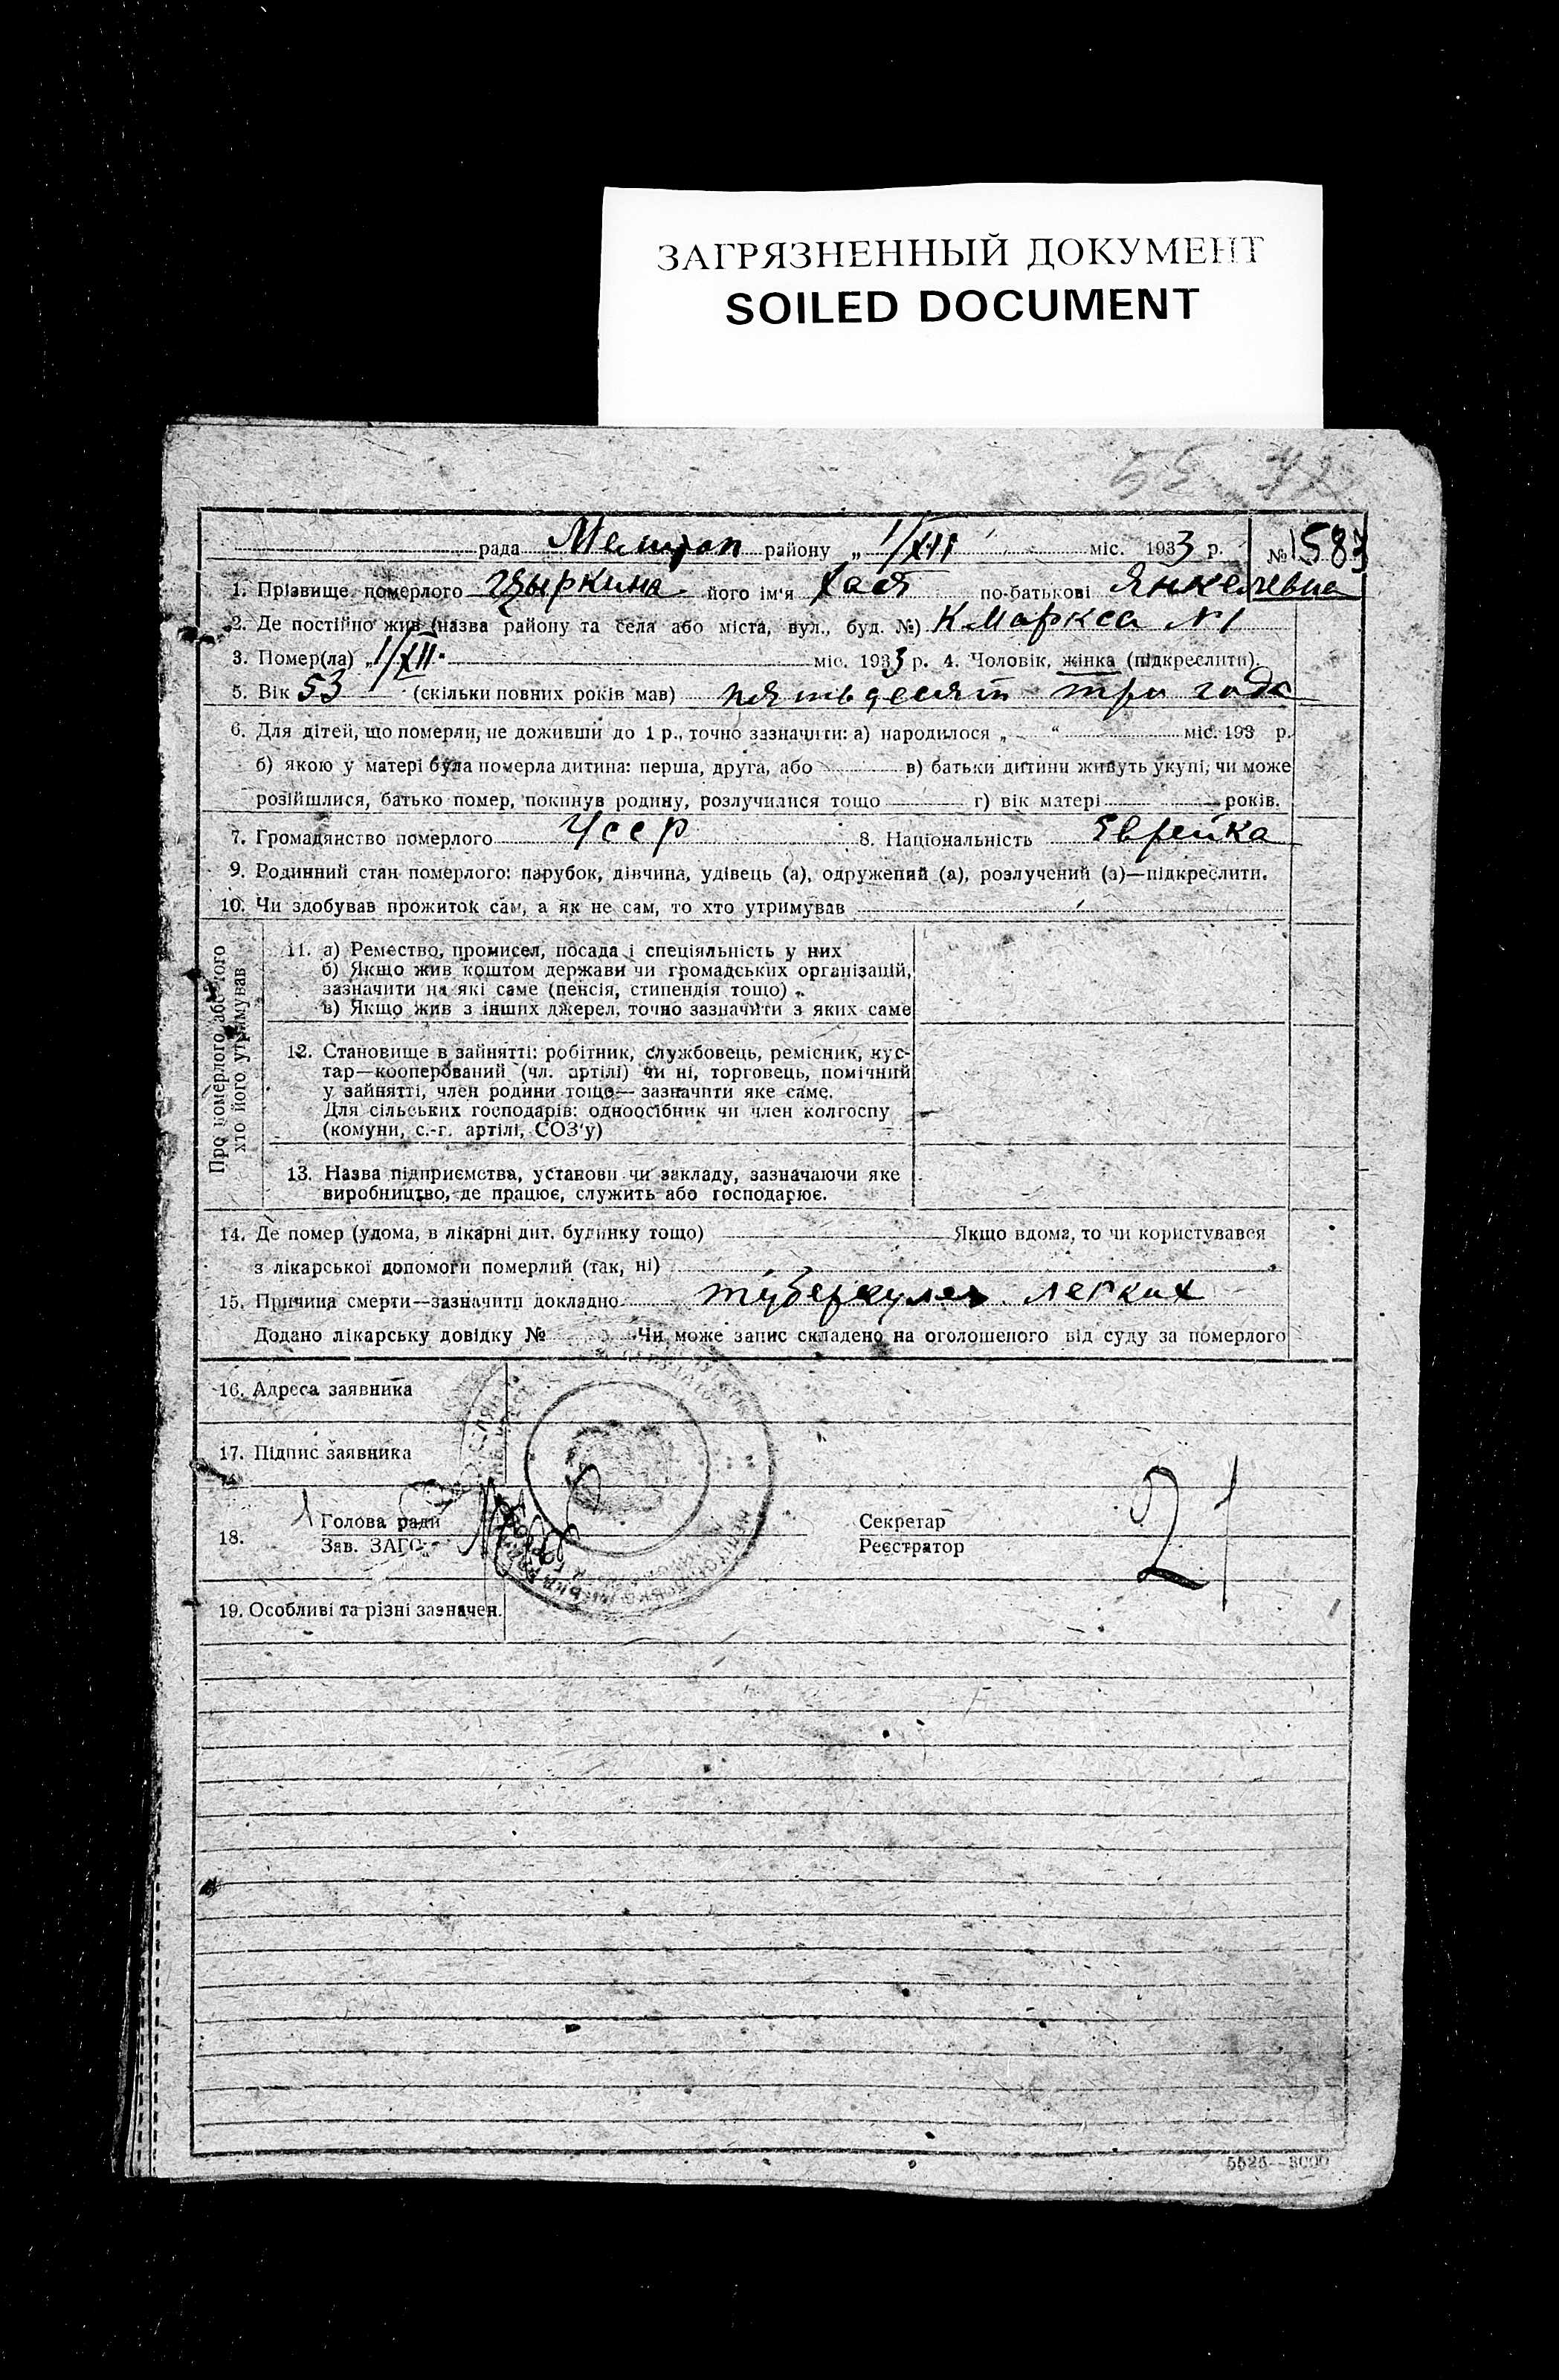 ЗАГРЯЗНЕННЫЙ ДОКУМЕНТ
SOILED DOCUMENT
55
рада Мелитоп району „ 1/XII міс. 1933 р. № 1583
1. Прізвище померлого Цыркина його ім'я Хася по-батькові Янкелевна
2. Де постійно жив (назва району та села або міста, вул., буд. №) К Маркса N 1
3. Помер(ла) „ 1/XII. міс. 1933 р. 4. Чоловік, жінка (підкреслити).
5. Вік 53 (скільки повних років мав) пятьдесят три года
6. Для дітей, що померли, не доживши до 1 р., точно зазначити: а) народилося „ “ міс. 193 р.
б) якою у матері була померла дитина: перша, друга, або в) батьки дитини живуть укупі, чи може
розійшлися, батько помер, покинув родину, розлучилися тощо г) вік матері років.
7. Громадянство померлого Усср 8. Національність Еврейка
9. Родинний стан померлого: парубок, дівчина, удівець (а), одружений (а), розлучений (а)—підкреслити.
10. Чи здобував прожиток сам, а як не сам, то хто утримував
Про померлого або того
хто його утримував
11. а) Ремество, промисел, посада і спеціяльність у них
б) Якщо жив коштом держави чи громадських організацій,
зазначити на які саме (пенсія, стипендія тощо)
в) Якщо жив з інших джерел, точно зазначити з яких саме
12. Становище в зайнятті: робітник, службовець, ремісник, кус-
тар—кооперований (чл. артілі) чи ні, торговець, помічний
у зайнятті, член родини тощо—зазначити яке саме.
Для сільських господарів: одноосібник чи член колгоспу
(комуни, с.-г. артілі, СОЗ'у)
13. Назва підприємства, установи чи закладу, зазначаючи яке
виробництво, де працює, служить або господарює.
14. Де помер (удома, в лікарні дит. будинку тощо) Якщо вдома, то чи користувався
з лікарської допомоги померлий (так, ні)
15. Причина смерти—зазначити докладно туберкулез легких
Додано лікарську довідку № Чи може запис складено на оголошеного від суду за померлого
16. Адреса заявника
17. Підпис заявника
18. Голова ради Секретар
Зав. ЗАГС Реєстратор
21
19. Особливі та різні зазначен.
5525—3000